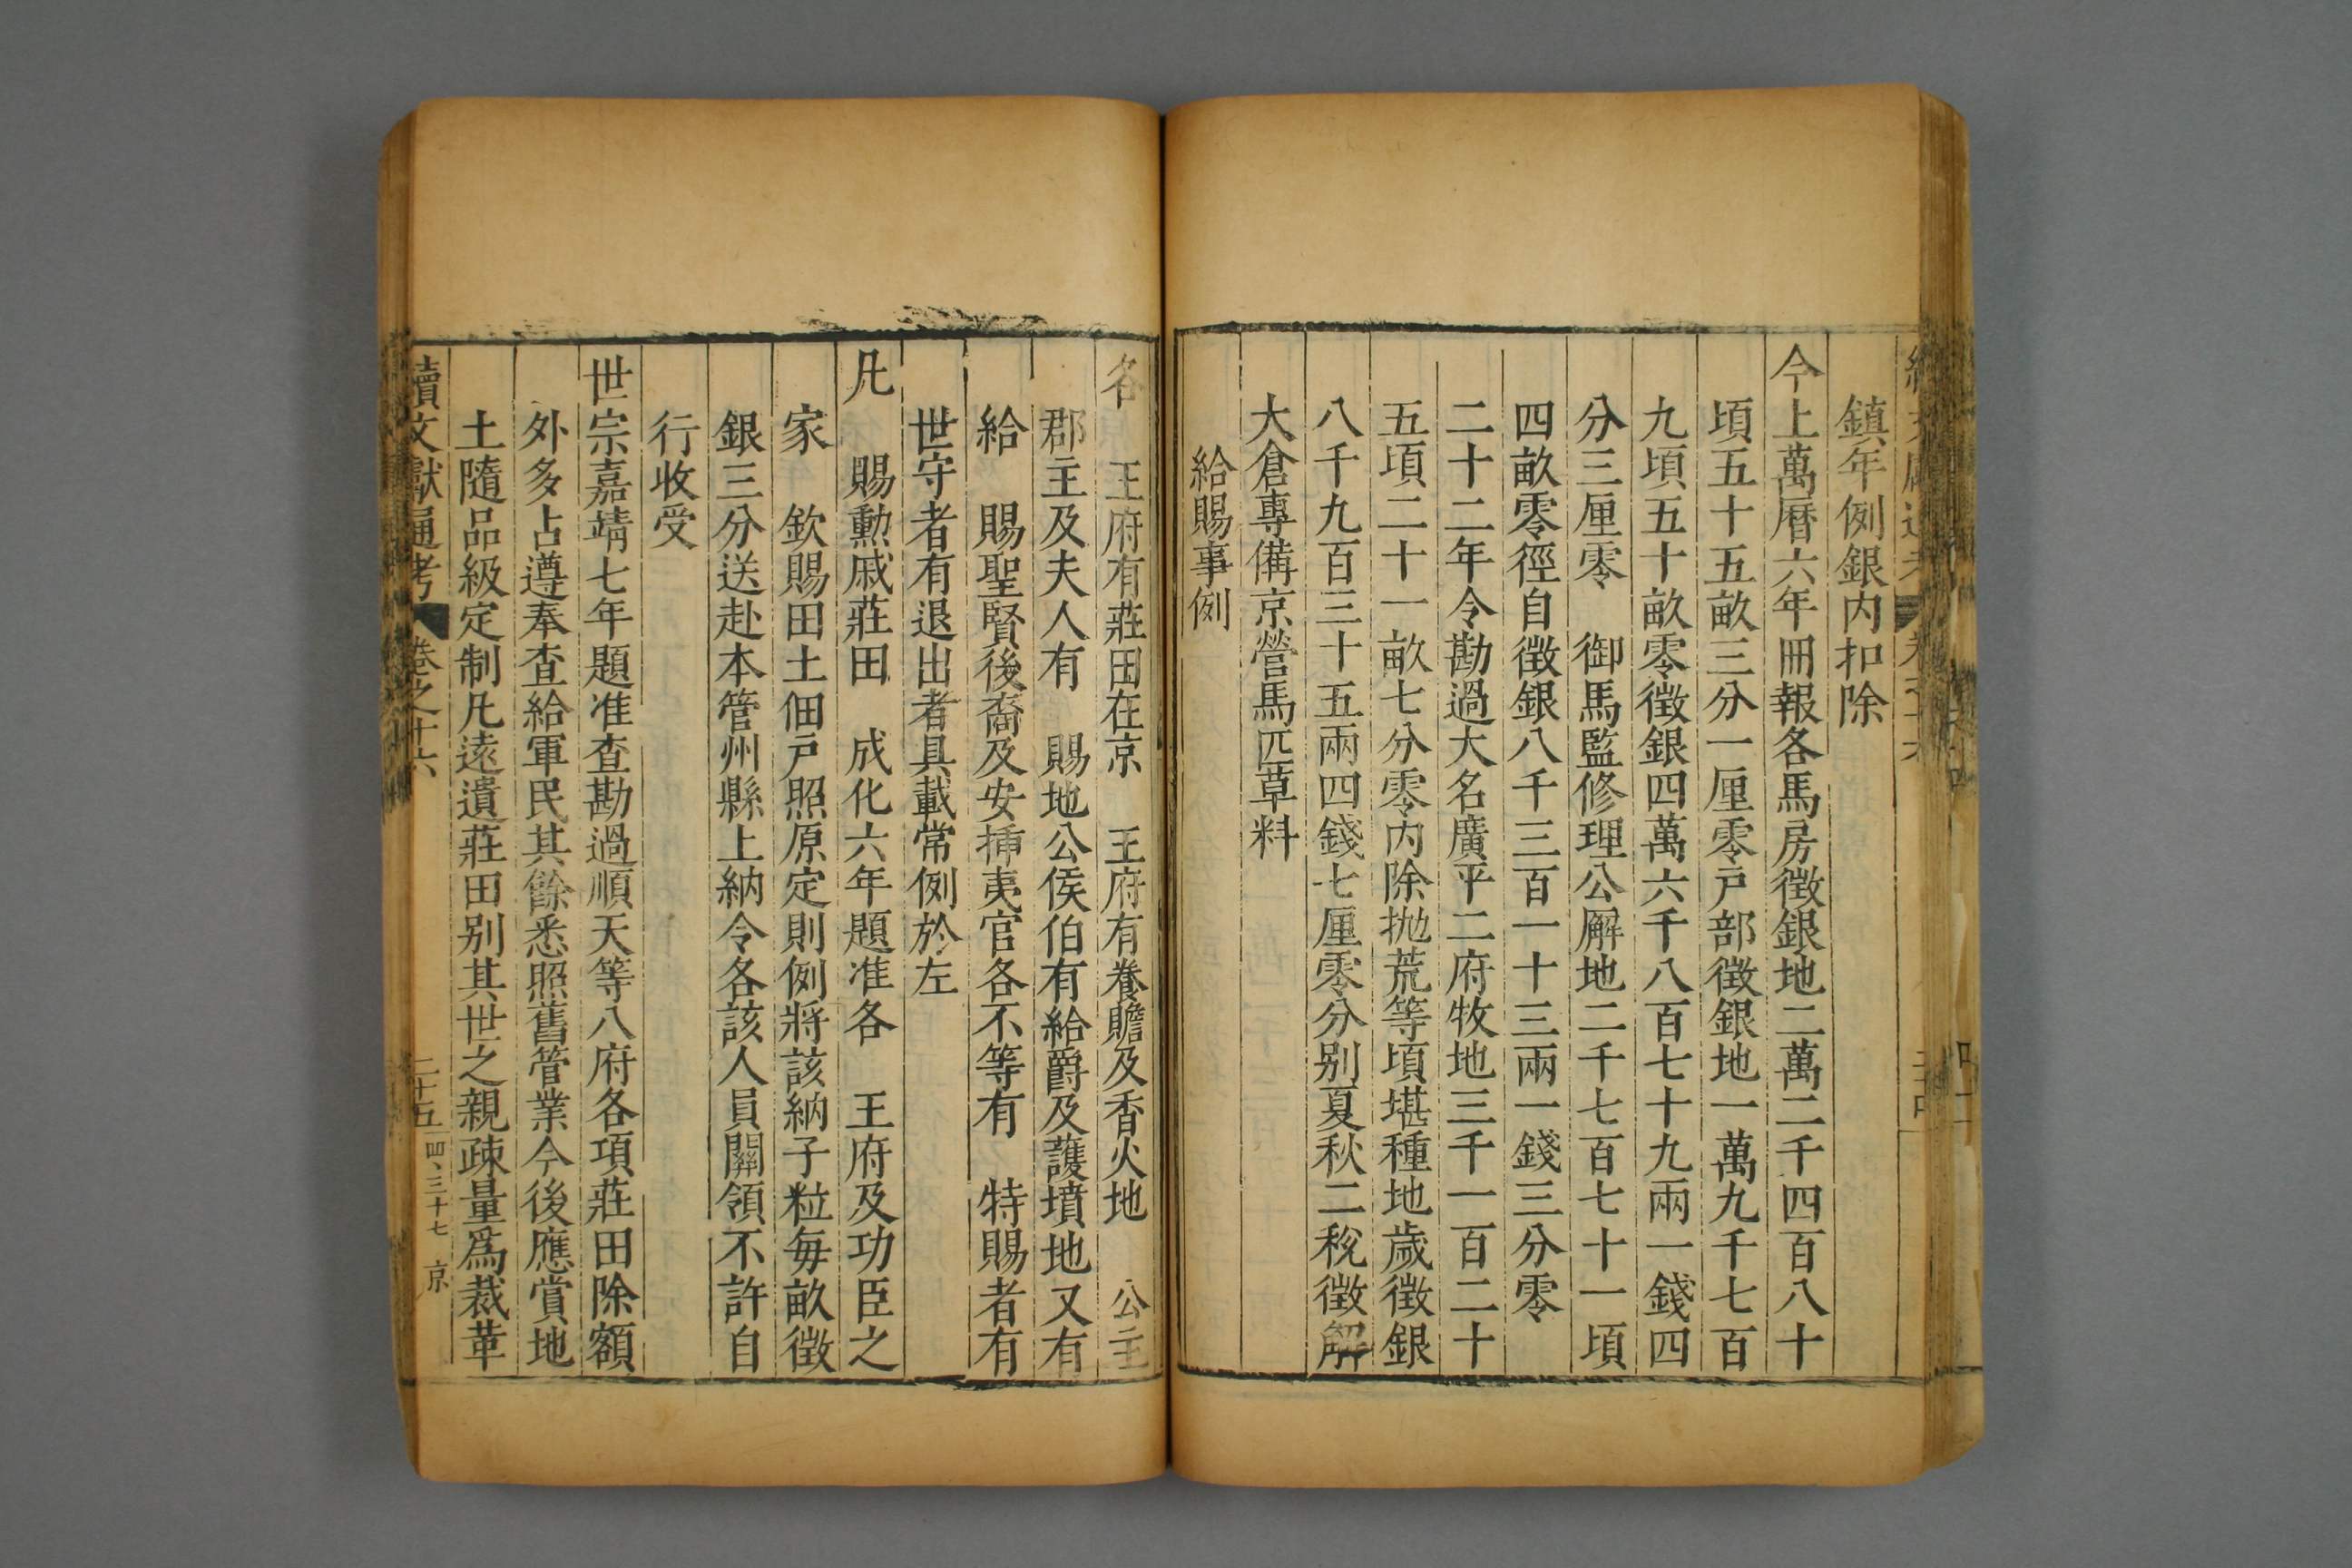 鎮年例銀内扣除
今上萬曆六年冊報各馬房徵銀地二萬二千四百八十
頃五十五畝三分一厘零戸部徵銀地一萬九千七百
九頃五十畝零徵銀四萬六千八百七十九兩一錢四
分三厘零　御馬監修理公廨地二千七百七十一頃
四畝零徑自徵銀八千三百一十三兩一錢三分零
二十二年令勘過大名廣平二府牧地三千一百二十
五頃二十一畝七分零内除抛荒等頃堪種地歲徵銀
八千九百三十五兩四錢七厘零分别夏秋二稅徵解
大倉專備京營馬匹草料
給賜事例
各　王府有莊田在京　王府有養贍及香火地　公主
郡主及夫人有　賜地公侯伯有給爵及護墳地又有
給　賜聖賢後裔及安揷夷官各不等有　特賜者有
世守者有退出者具載常例於左
凡　賜勲戚莊田　成化六年題准各　王府及功臣之
家　欽賜田土佃戸照原定則例將該納子粒每畝徵
銀三分送赴本管州縣上納令各該人員關領不許自
行收受
世宗嘉靖七年題准查勘過順天等八府各項莊田除額
外多占遵奉查給軍民其餘悉照舊管業今後應賞地
土隨品級定制凡遠遺莊田别其世之親疎量爲裁革
續文獻通考　卷之十六　二十五　四、三十七　京